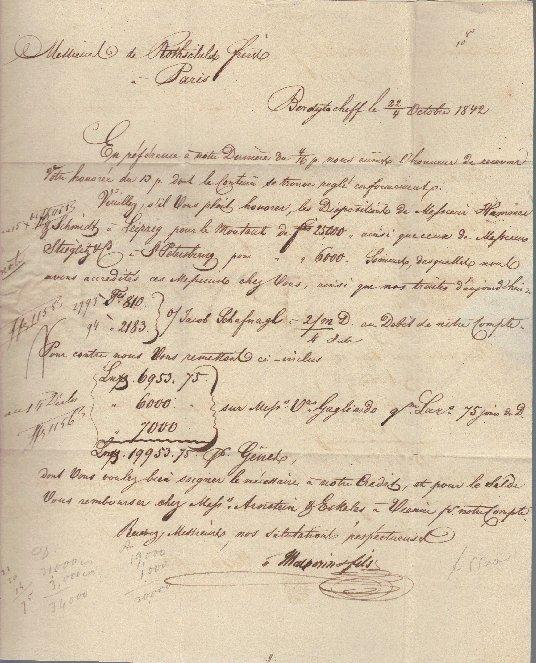 Messieurs de Rothschild frères
à
Paris
Berdytscheff le 22/4 Octobre 1842
En référence à notre Dernière du 4/16 p. nous avons l'honneur de recevoir
Votre honorée du 13 p. dont le Contenu se trouve réglé conformement.
Veuillez, s'il Vous plait honorer, les Dispositions de Messieurs Hammer
& Schmidt à Leipzig pour le Montant de frs 25000, ainsi que ceux de Messieurs
Stieglitz & Co à St Petersbourg pour " 6000. Sommes desquelles nous
avons accrédités ces Messieurs chez Vous, ainsi que nos traites d'aujourd'hui
1993 frs 810.
94 " 2183. } o/ Jacob Schafnagl - 2/m D. au Debit de nôtre Compte.
4 dto
Pour contre nous Vous remettons ci-inclus
6953.75
" 6000
" 7000
sur Messrs Vve Gagliardo 75 jours de D.
19953.75 Gênes,
dont Vous voulez bien soigner le nécessaire à notre Credit, et pour le Solde
Vous rembourser chez Messrs Arnstein & Eskeles à Vienne pr notre Compte
Recevez, Messieurs, nos salutations respectueuses
Halperin & fils
31000
3,000
34000
19,000
1000
20000